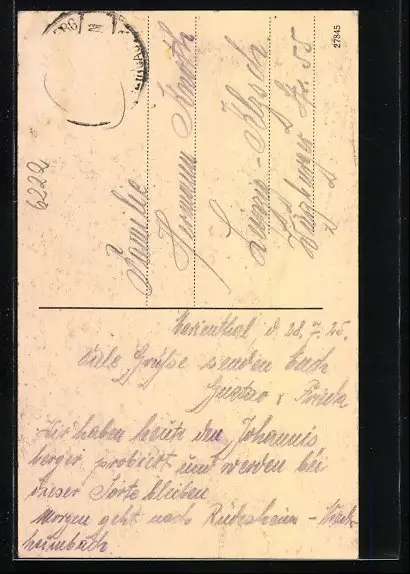 27845
6222
Familie
Hermann
Leipzig -
Nr. 55
Marienthal, d. 28. 7. 25.
Viele Grüsse senden Euch
Gustav & Frieda
Wir haben heute den Johannis
berger probiert und werden bei
dieser Sorte bleiben
Morgen geht nach Rüdesheim -
heimbach